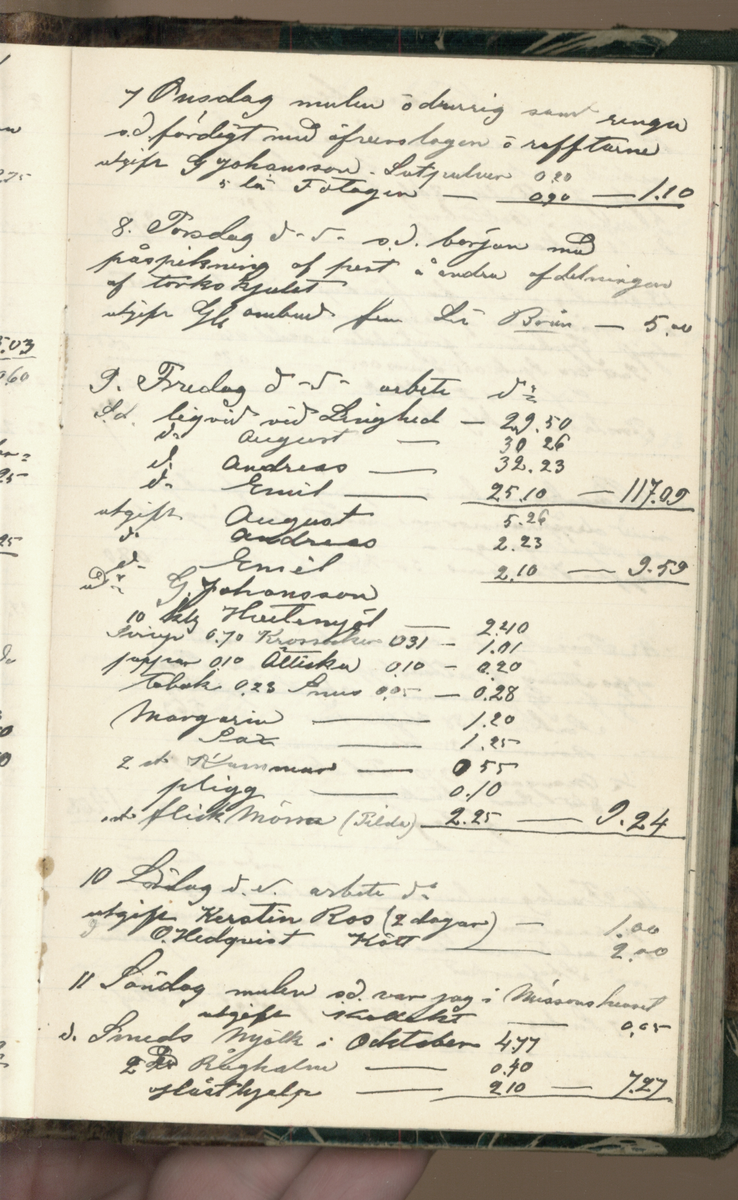 7 Onsdag mulen ödrurig samt rengn
s.d. färdigt med öfreuslagen ö rafftarne
utgift G Johansson. Lutpulver 0.20
5 la Totagen — 0.90 — 1.10
8. Torsdag d-s- s.d. början med
påspikning af pert å andra afdelningen
af torkskjulet
utgift Gb ombud frun Lis Brån — 5.00
9. Fredag d-s- arbete d:o
S.d. liqvid vid Ljughed — 29.50
d:o August — 30 26
d:o Andreas — 32.23
d:o Emil — 25.10 — 117.09
utgift August 5.26
d:o Andreas 2.23
d:o Emil 2.10 — 9.59
d:o G. Johansson
10 klg Hvetemjöl — 2.40
0.70 Krossocker 0.31 — 1.01
peppar 0.10 Ätticka 0.10 — 0.20
tobak 0.23 Snus 0.05 — 0.28
Margarin — 1.20
Sax — 1.25
2 st Kammar — 0 55
pligg — 0.10
st flick Mössa (Tilda) 2.25 — 9.24
10 Lördag d.s. arbete d:o
utgift Kerstin Ros (2 dagar) — 1.00
O. Hedqvist Kött — 2.00
11 Söndag mulen s.d. var jag i Missonshuset
utgift Kollekt — 0.05
d. Smeds Mjölk i Ocktober 4.77
2 Råghalm — 0.40
slåsthjelp — 2 10 — 7.27